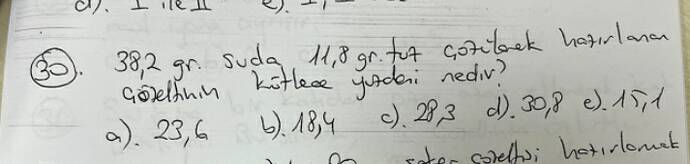 d). I ile II e). I,
30). 38,2 gr. suda 11,8 gr. tuz çözülerek hazırlanan
çözeltinin kütlece yüzdesi nedir?
a). 23,6 b). 18,4 c). 28,3 d). 30,8 e). 15,1
şeker çözeltisi hazırlamak